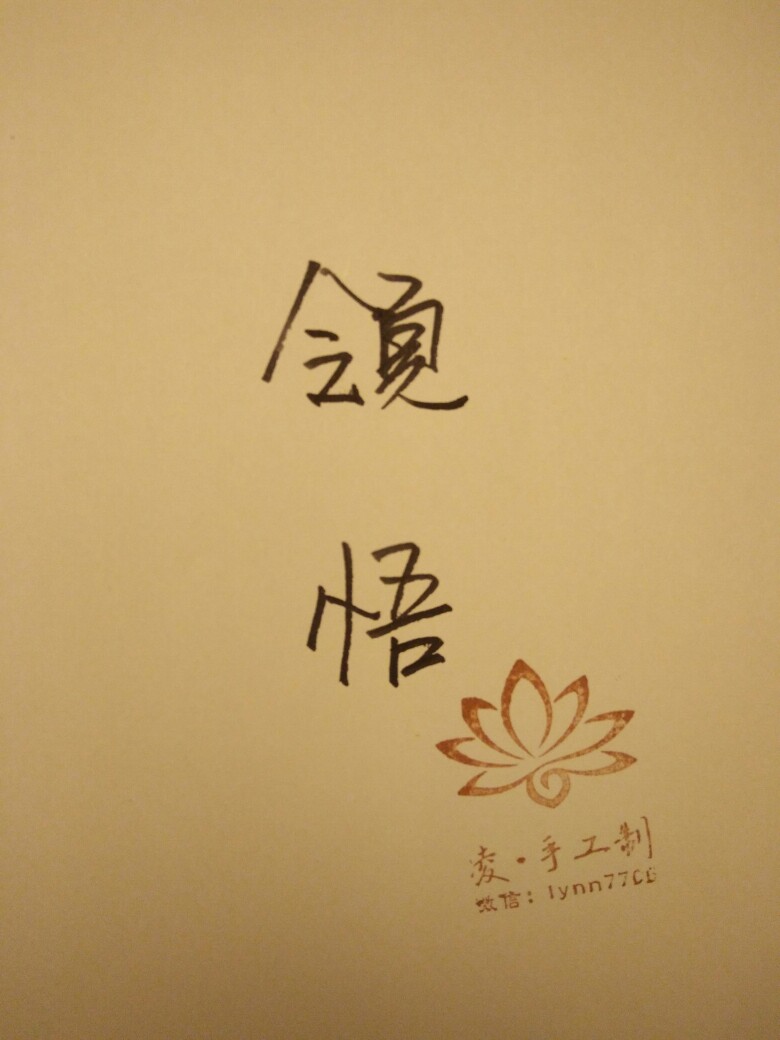 领
悟
凌·手工制
微信：lynn77